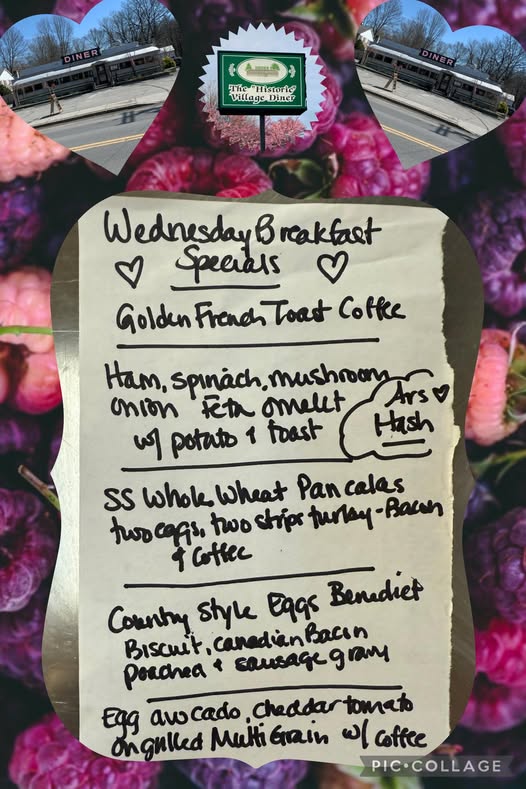 DINER
DINER
The "Historic"
Village Diner
Wednesday Breakfast
Specials
Golden French Toast Coffee
Ham, spinach, mushroom
onion Feta omelet
w/ potato & toast
Ars
Hash
SS Whole Wheat Pancakes
two eggs, two strips turkey-Bacon
& Coffee
Country Style Eggs Benedict
Biscuit, canadian Bacon
poached & sausage gravy
Egg avocado, cheddar tomato
on grilled Multi Grain w/ coffee
PIC•COLLAGE